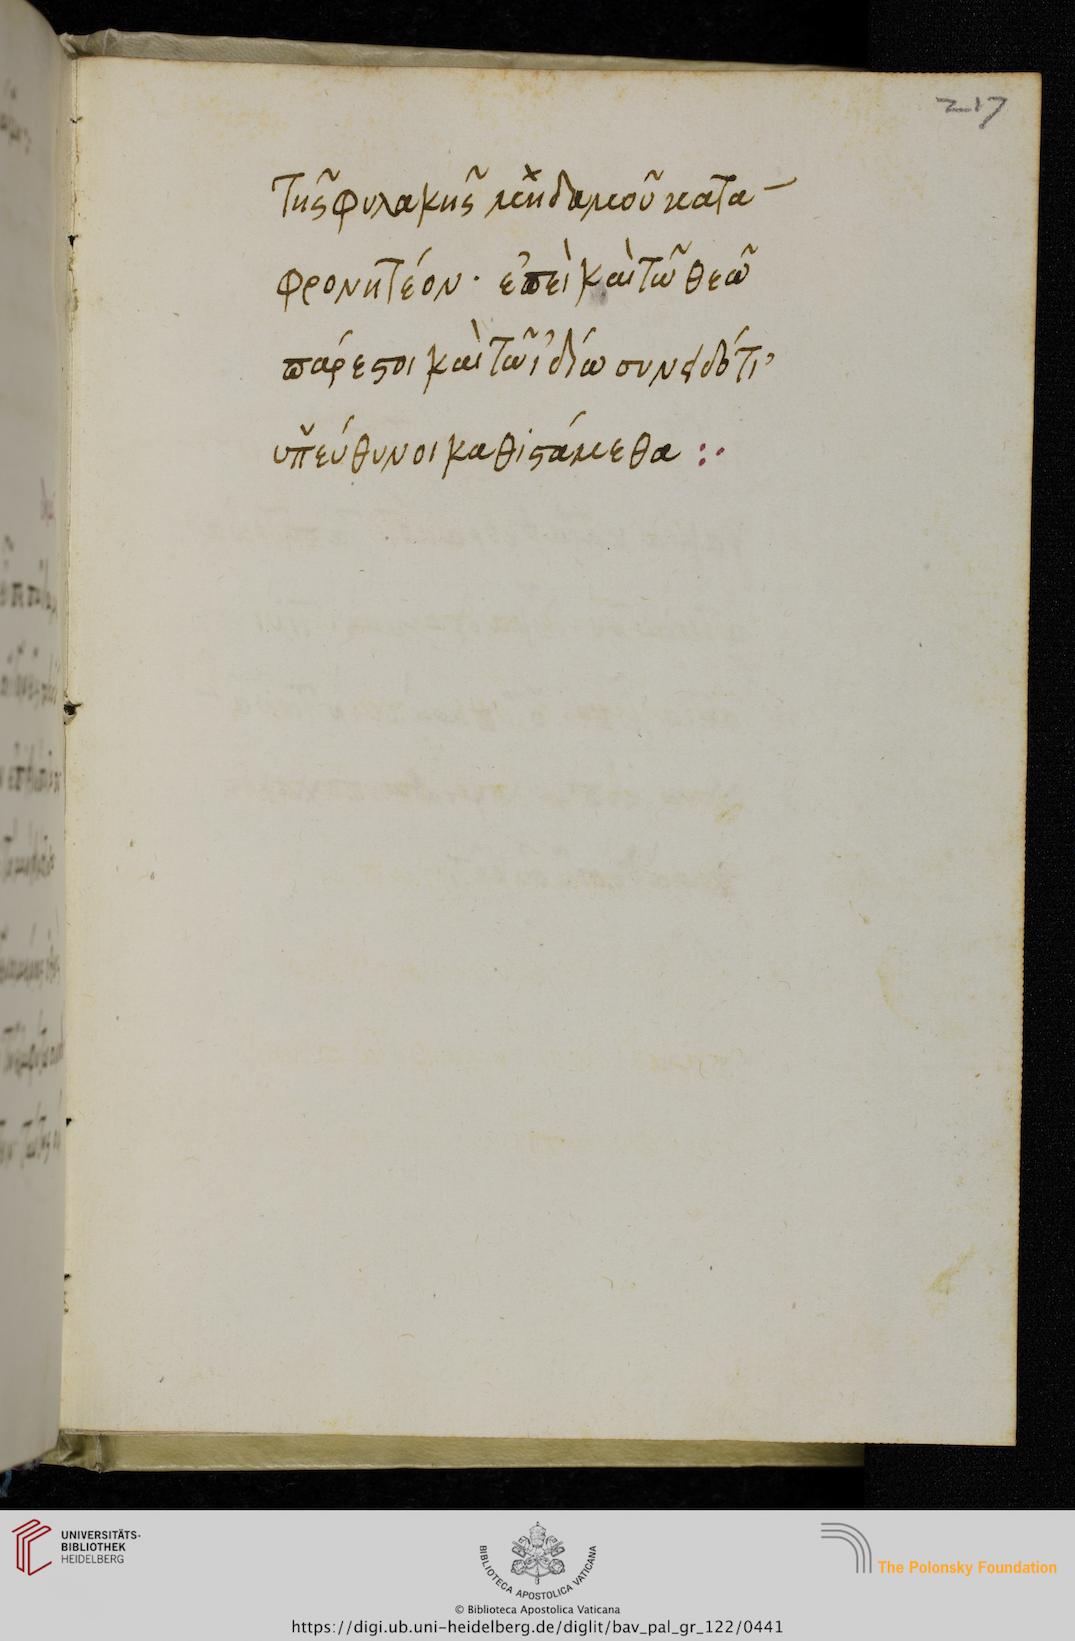 217
τῆς φυλακῆς μὴ δαμοῦ κατα-
φρονητέον· ἐπεὶ καὶ τῶ θεῶ
πάρεστι καὶ τῶ ἰδίω συνειδότι,
ὑπεύθυνοι καθιστάμεθα :·
UNIVERSITÄTS-
BIBLIOTHEK
HEIDELBERG
BIBLIOTECA APOSTOLICA VATICANA
The Polonsky Foundation
© Biblioteca Apostolica Vaticana
https://digi.ub.uni-heidelberg.de/diglit/bav_pal_gr_122/0441